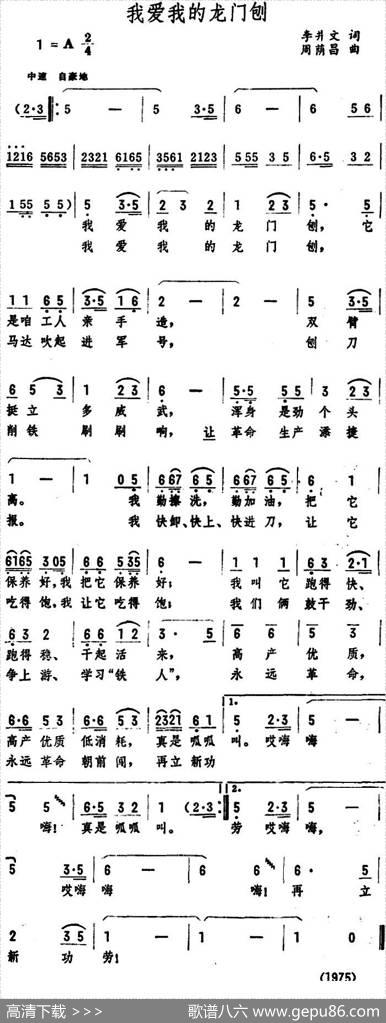 我爱我的龙门刨
1=A 2/4
李井文 词
周荫昌 曲
中速 自豪地
(2·3 | 5 — | 5 3·5 | 6 — | 5 6 |
1216 5653 | 2321 6165 | 3561 2123 | 5 55 3 5 | 6·5 3 2 |
1 55 5 5) | 5 3·5 | 2 3 2 | 1 2 3 | 5 · 5 |
我 爱 我 的 龙 门 刨, 它
我 爱 我 的 龙 门 刨,
1 1 6 5 | 3·5 1 6 | 2 — | 2 — | 5 3·5 |
是咱 工人 亲 手 造, 双 臂
马达 吹起 进 军 号, 刨 刀
6 5 3 | 1 2 3 | 6 — | 5·5 5 5 | 3 2 3 |
挺 立 多 威 武, 浑身 是劲 个 头
削 铁 刷 刷 响, 让 革命 生产 添 捷
1 — | 1 0 5 | 6 67 6 5 | 6 67 6 5 | 6 1 |
高。 我 勤擦 洗, 勤加 油, 把 它
报。 我 快卸、快上、快进 刀, 让 它
6165 3 05 | 6 6 5 35 | 6 — | 1 1 1 | 6 3 2·1 |
保养 好, 我 把它 保养 好; 我 叫 它 跑得 快、
吃得 饱, 我 让它 吃得 饱; 我 们 俩 鼓干 劲、
6 3 2 | 6 6 1 2 | 3 · 5 | 6 6 | 5 3 |
跑得 稳、 干起 活 来, 高 产 优 质,
争上 游、 学习“铁 人”, 永 远 革 命,
6·6 5 3 | 6·6 5 3 | 2321 6 1 | 5 2·3 | 5 — |
高产 优质 低消 耗, 真是 呱呱 叫。 哎嗨 嗨
永远 革命 朝前 闯, 再立 新功
1.
5 5 | 6·5 3 2 | 1 (2·3 | 5 2·3 | 5 — |
嗨! 真是 呱呱 叫。 劳 哎嗨 嗨,
2.
5 3·5 | 6 — | 6 6 | 6 · 5 | 5 6 |
哎嗨 嗨 嗨! 再 立
2 3 5 | 1 — | 1 — | 1 0 |
新 功 劳!
(1975)
高清下载 >>>
歌谱八六 www.gepu86.com